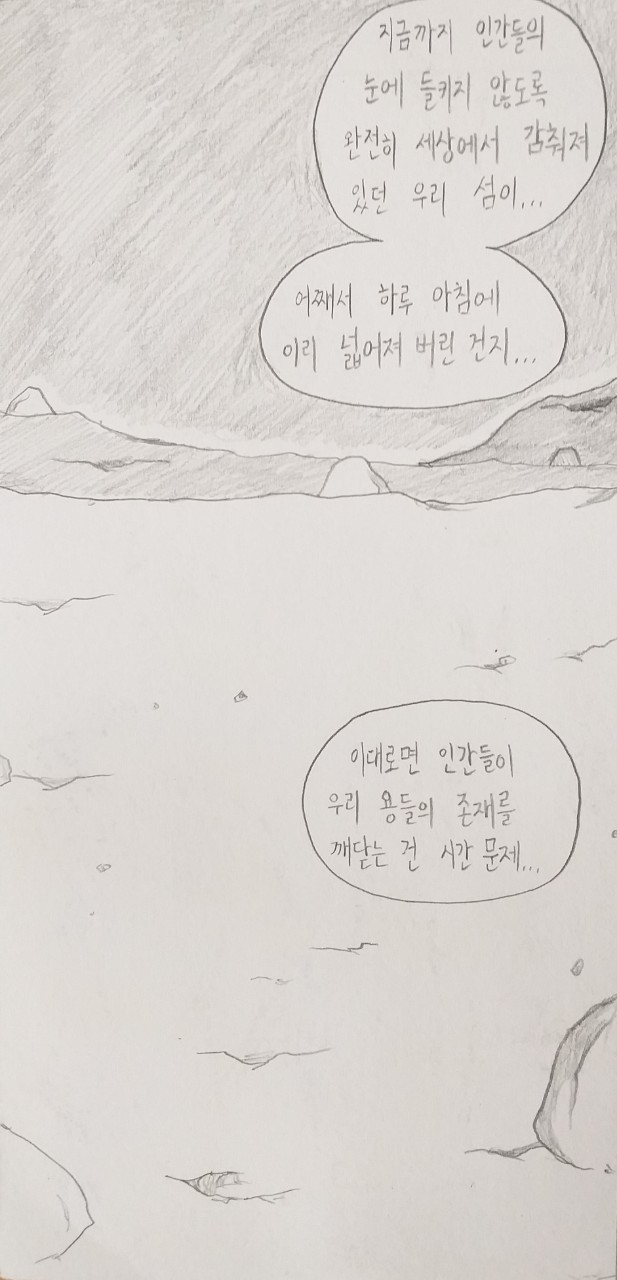 지금까지 인간들의
눈에 들키지 않도록
완전히 세상에서 감춰져
있던 우리 섬이...
어째서 하루 아침에
이리 넓어져 버린 건지...
이대로면 인간들이
우리 용들의 존재를
깨닫는 건 시간 문제...